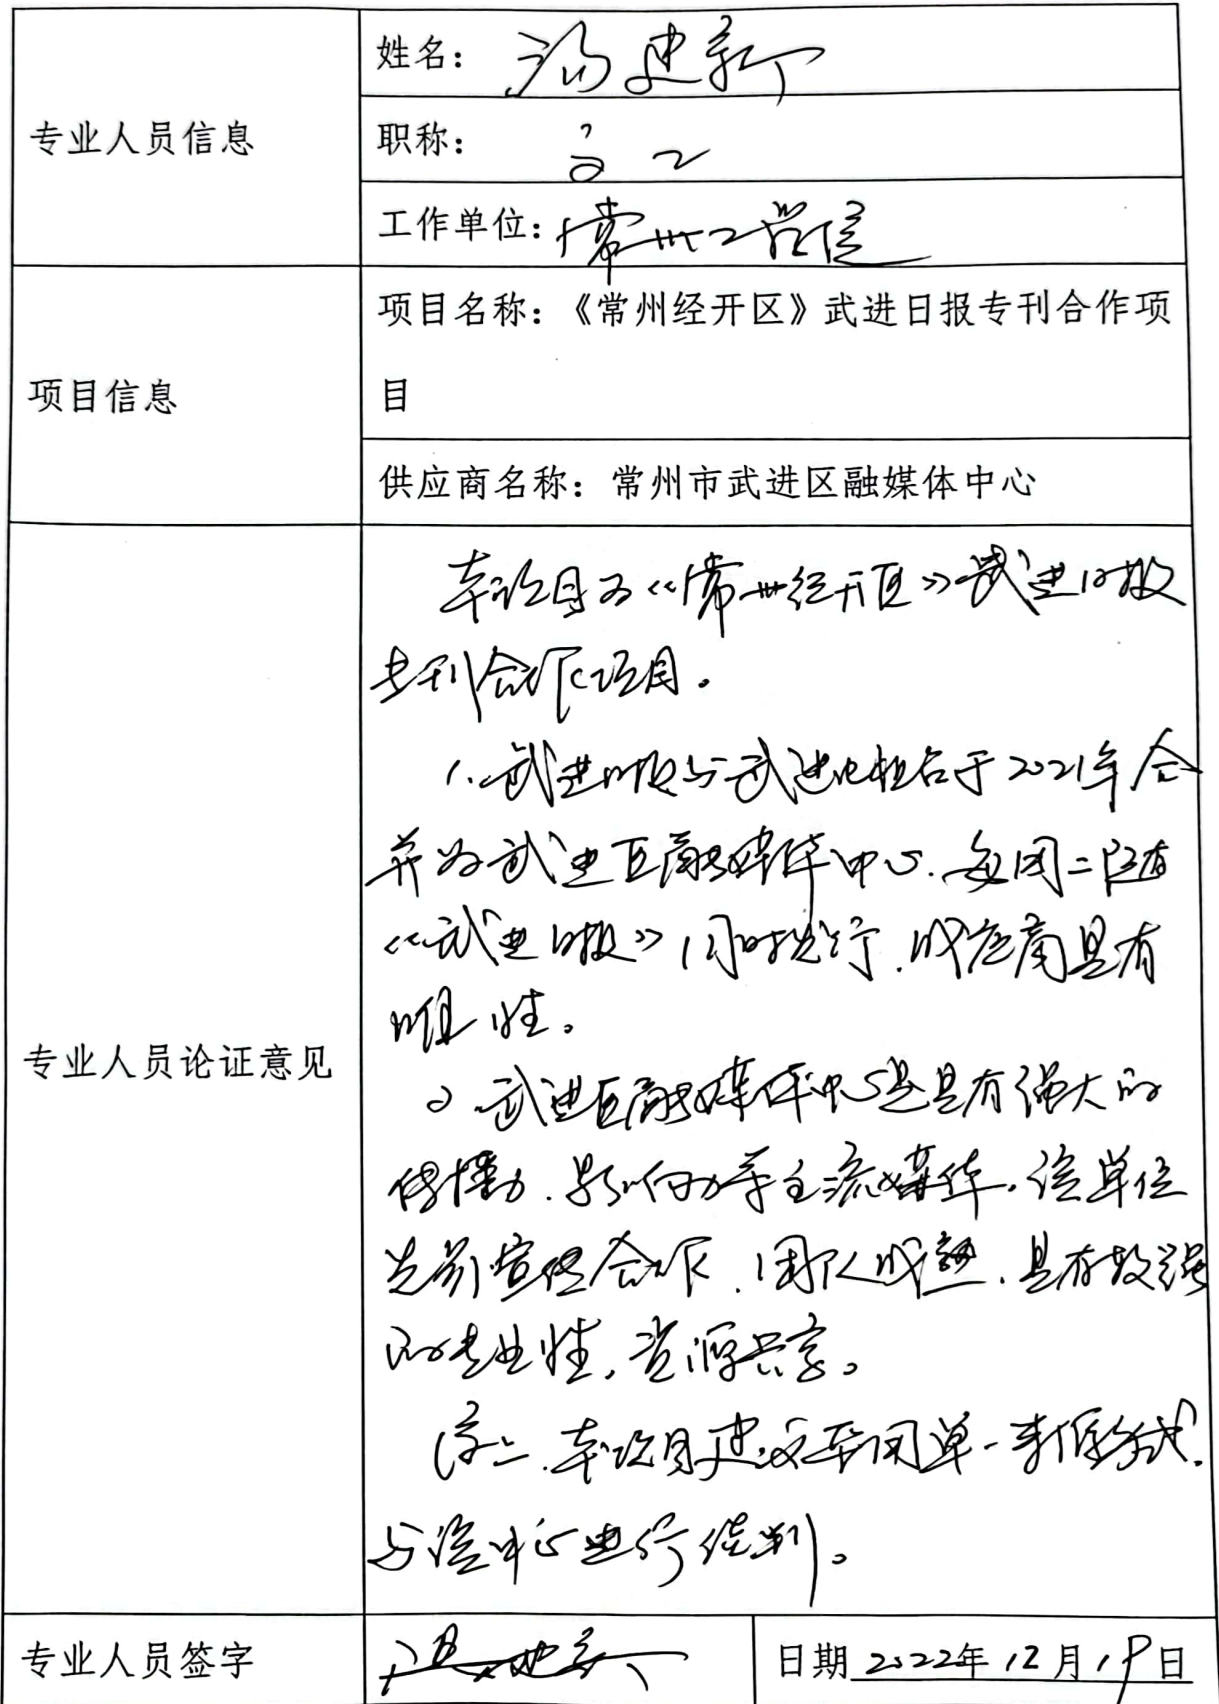 专业人员信息
姓名：汤建新
职称：高工
工作单位：常州工学院
项目信息
项目名称：《常州经开区》武进日报专刊合作项
目
供应商名称：常州市武进区融媒体中心
专业人员论证意见
本项目为《常州经开区》武进日报
专刊合作项目。
1.武进日报与武进电视台于2021年合
并为武进区融媒体中心.每周二随着
《武进日报》同时发行.供应商具有
唯一性。
2.武进区融媒体中心是具有强大的
传播力.影响力等主流媒体。该单位
先前宣传合作.团队成熟.具有较强
的专业性,资源共享。
综上.本项目建议采用单一来源方式.
与该中心进行谈判。
专业人员签字
汤建新
日期2022年12月19日